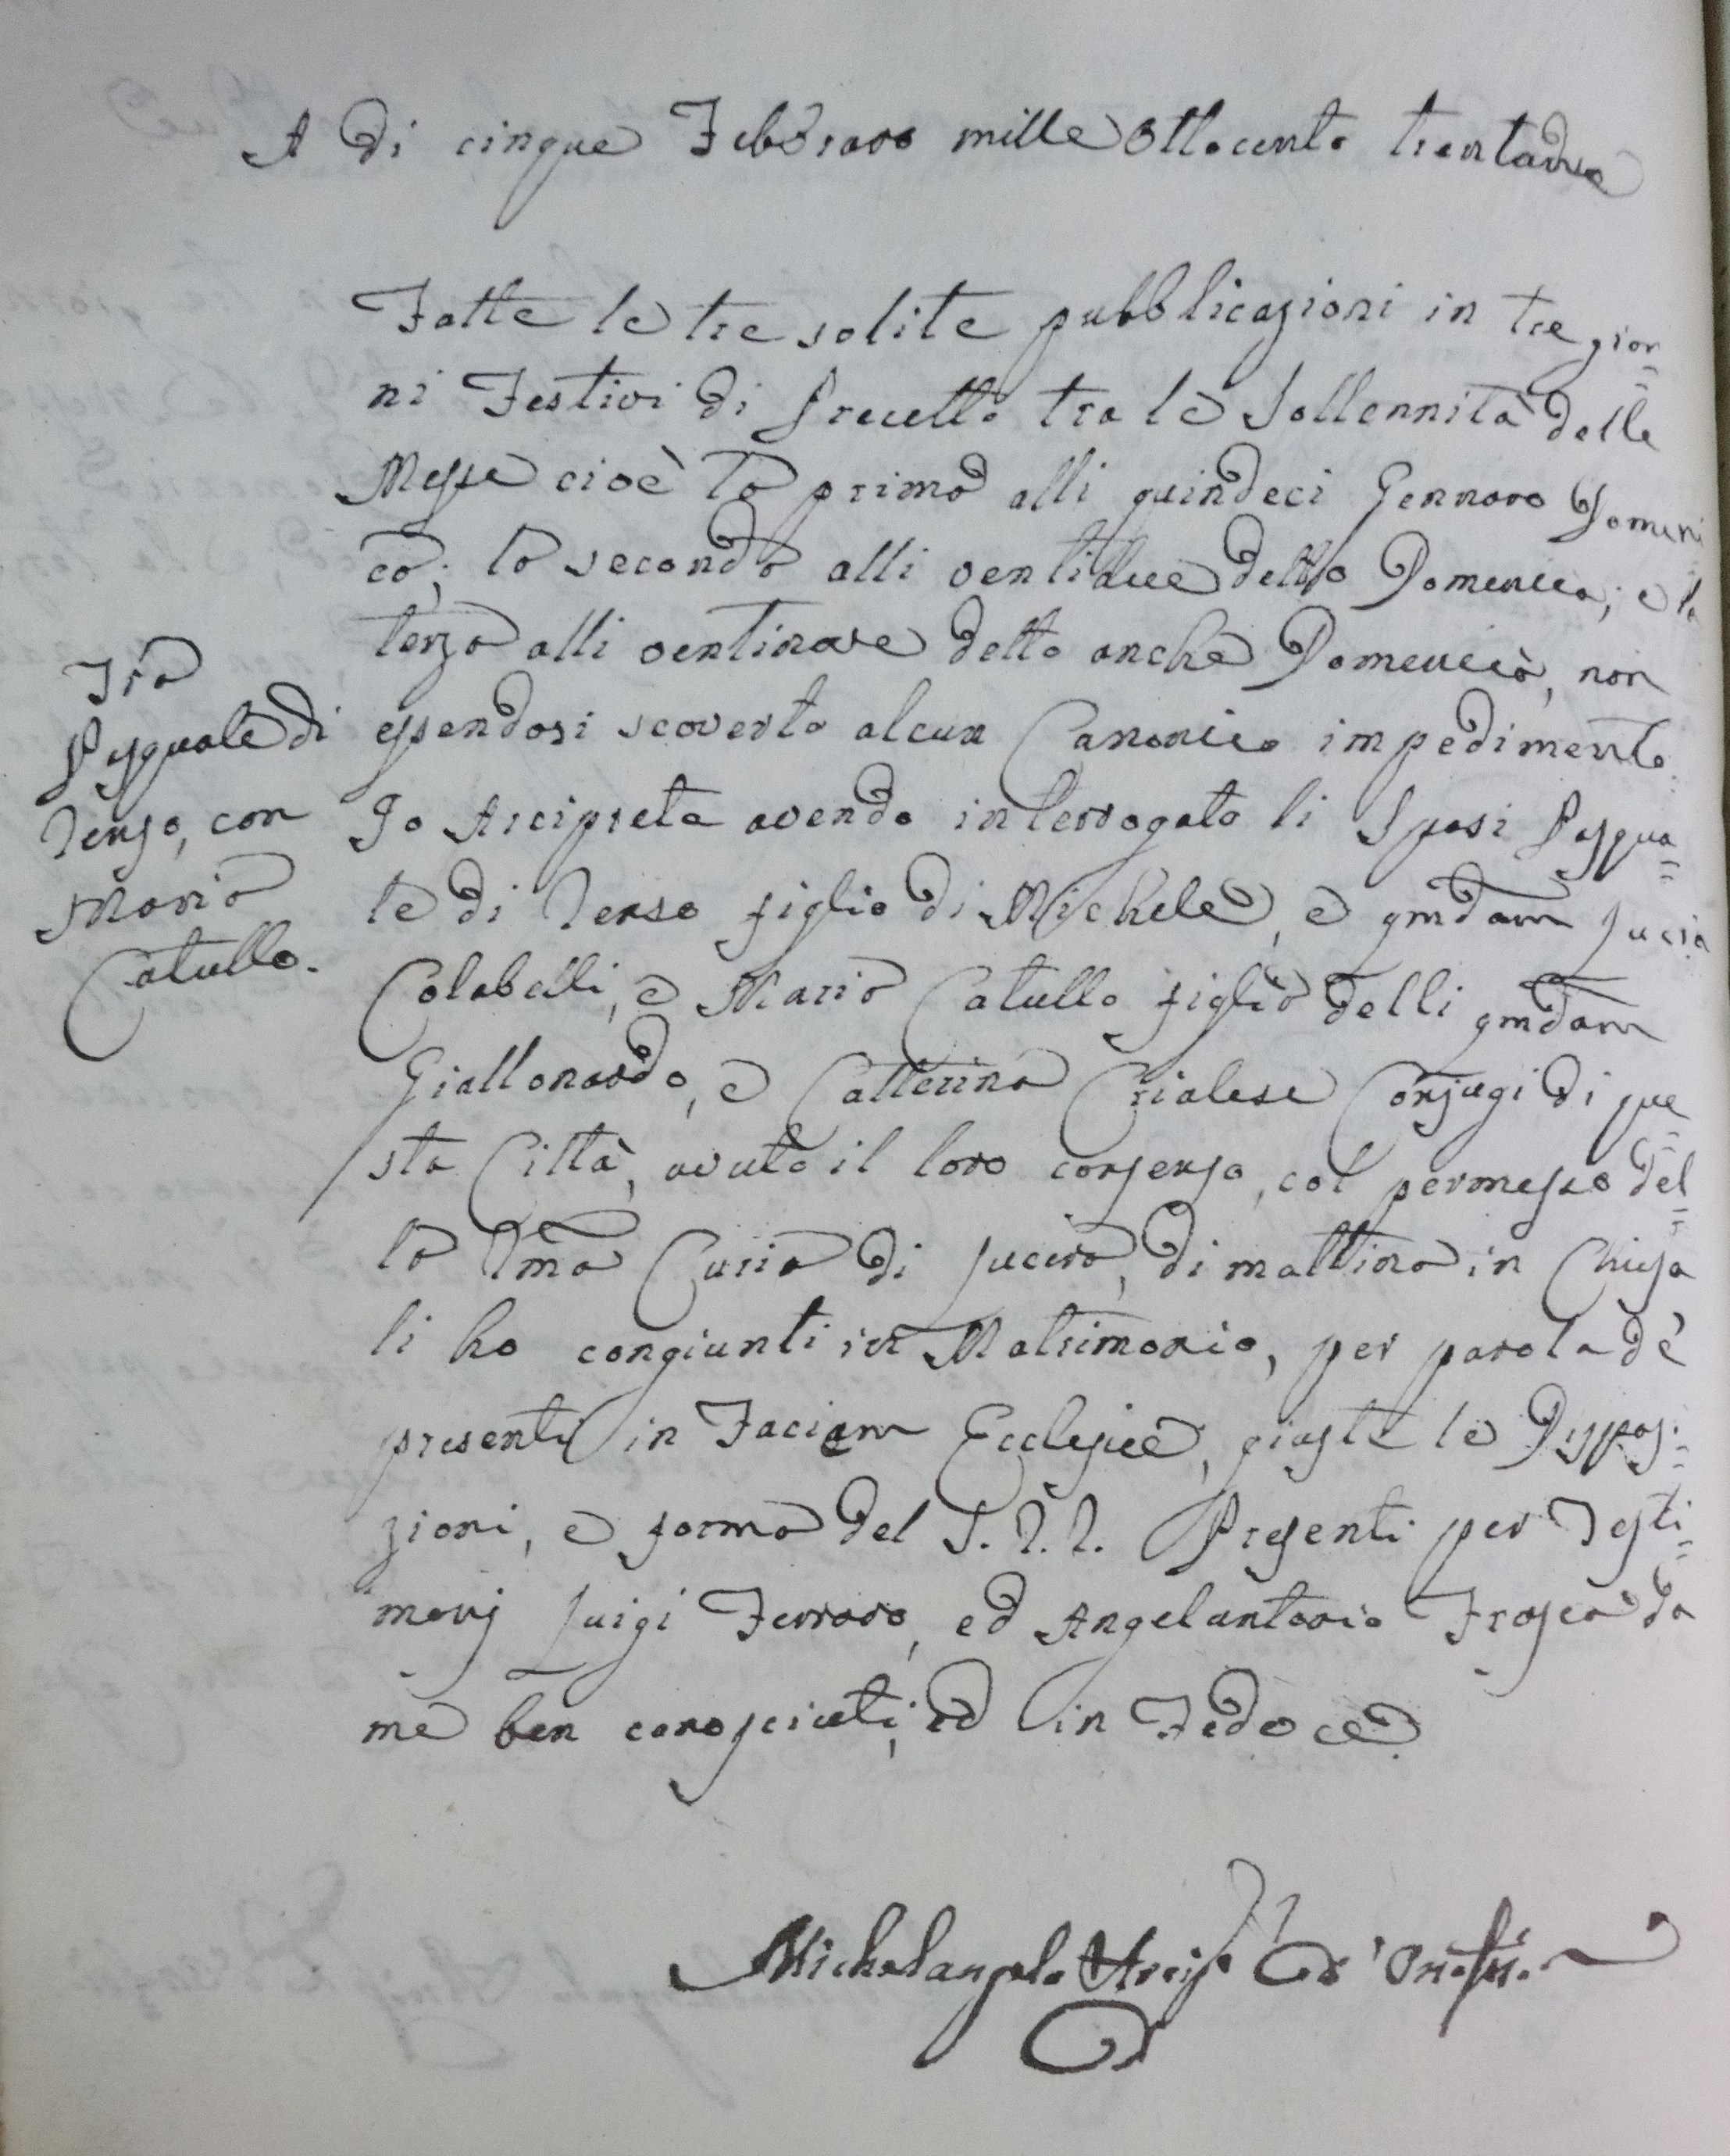 A di cinque Febbraro mille ottocento trentadue
Fatte le tre solite pubblicazioni in tre gior=
ni Festivi di Precetto tra le Sollennità delle
Messe cioè la prima alli quindeci Gennaro Domeni
ca; la seconda alli ventidue detto Domenica; e la
terza alli ventinove detto anche Domenica, non
essendosi scoverto alcun Canonico impedimento
Io Arciprete avendo interrogato li Sposi Pasqua=
le di Renzo figlio di Michele, e qmdam Lucia
Colabelli, e Maria Catullo figlia delli qmdam
Giallonardo, e Catterina Crialese Conjugi di que=
sta Città, avuto il loro consenso, col permesso del=
la Rma Curia di Lucera, di mattina in Chiesa
li ho congiunti in Matrimonio, per parola de
presenti in Faciem Ecclesiae, giusta le Disposi=
zioni, e forma del S. R. C. Presenti per Testi=
monj Luigi Ferraro, ed Angelantonio Frasca da
me ben conosciuti; ed in Fede &c
Tra
Pasquale di
Renzo, con
Maria
Catullo.
Michelangelo Arcip.